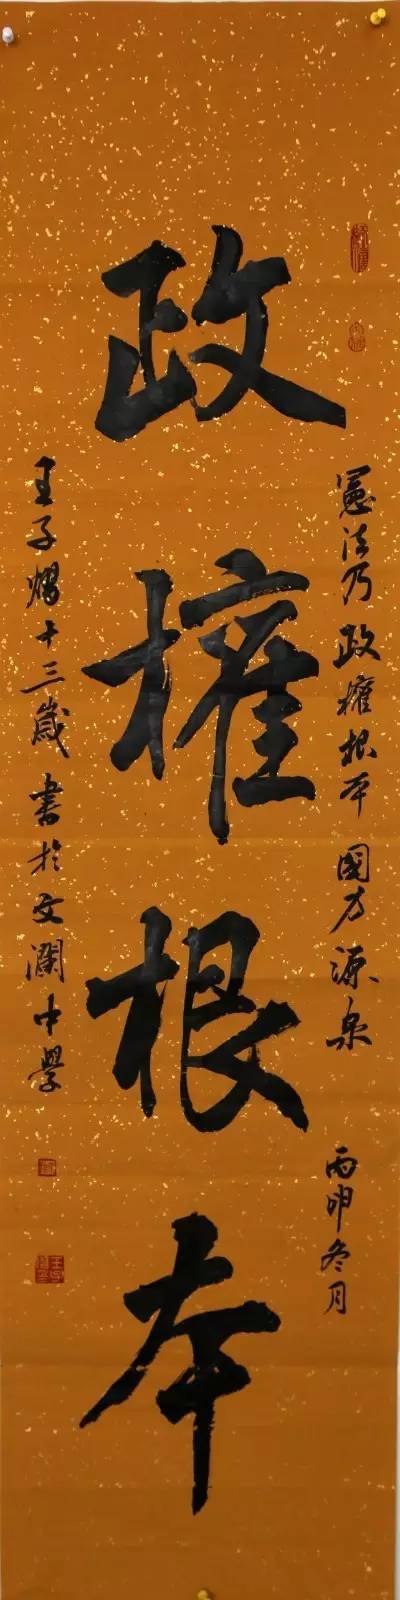 憲法乃政權根本國力源泉
丙申冬月
政權根本
王子十三歲書於文瀾中學